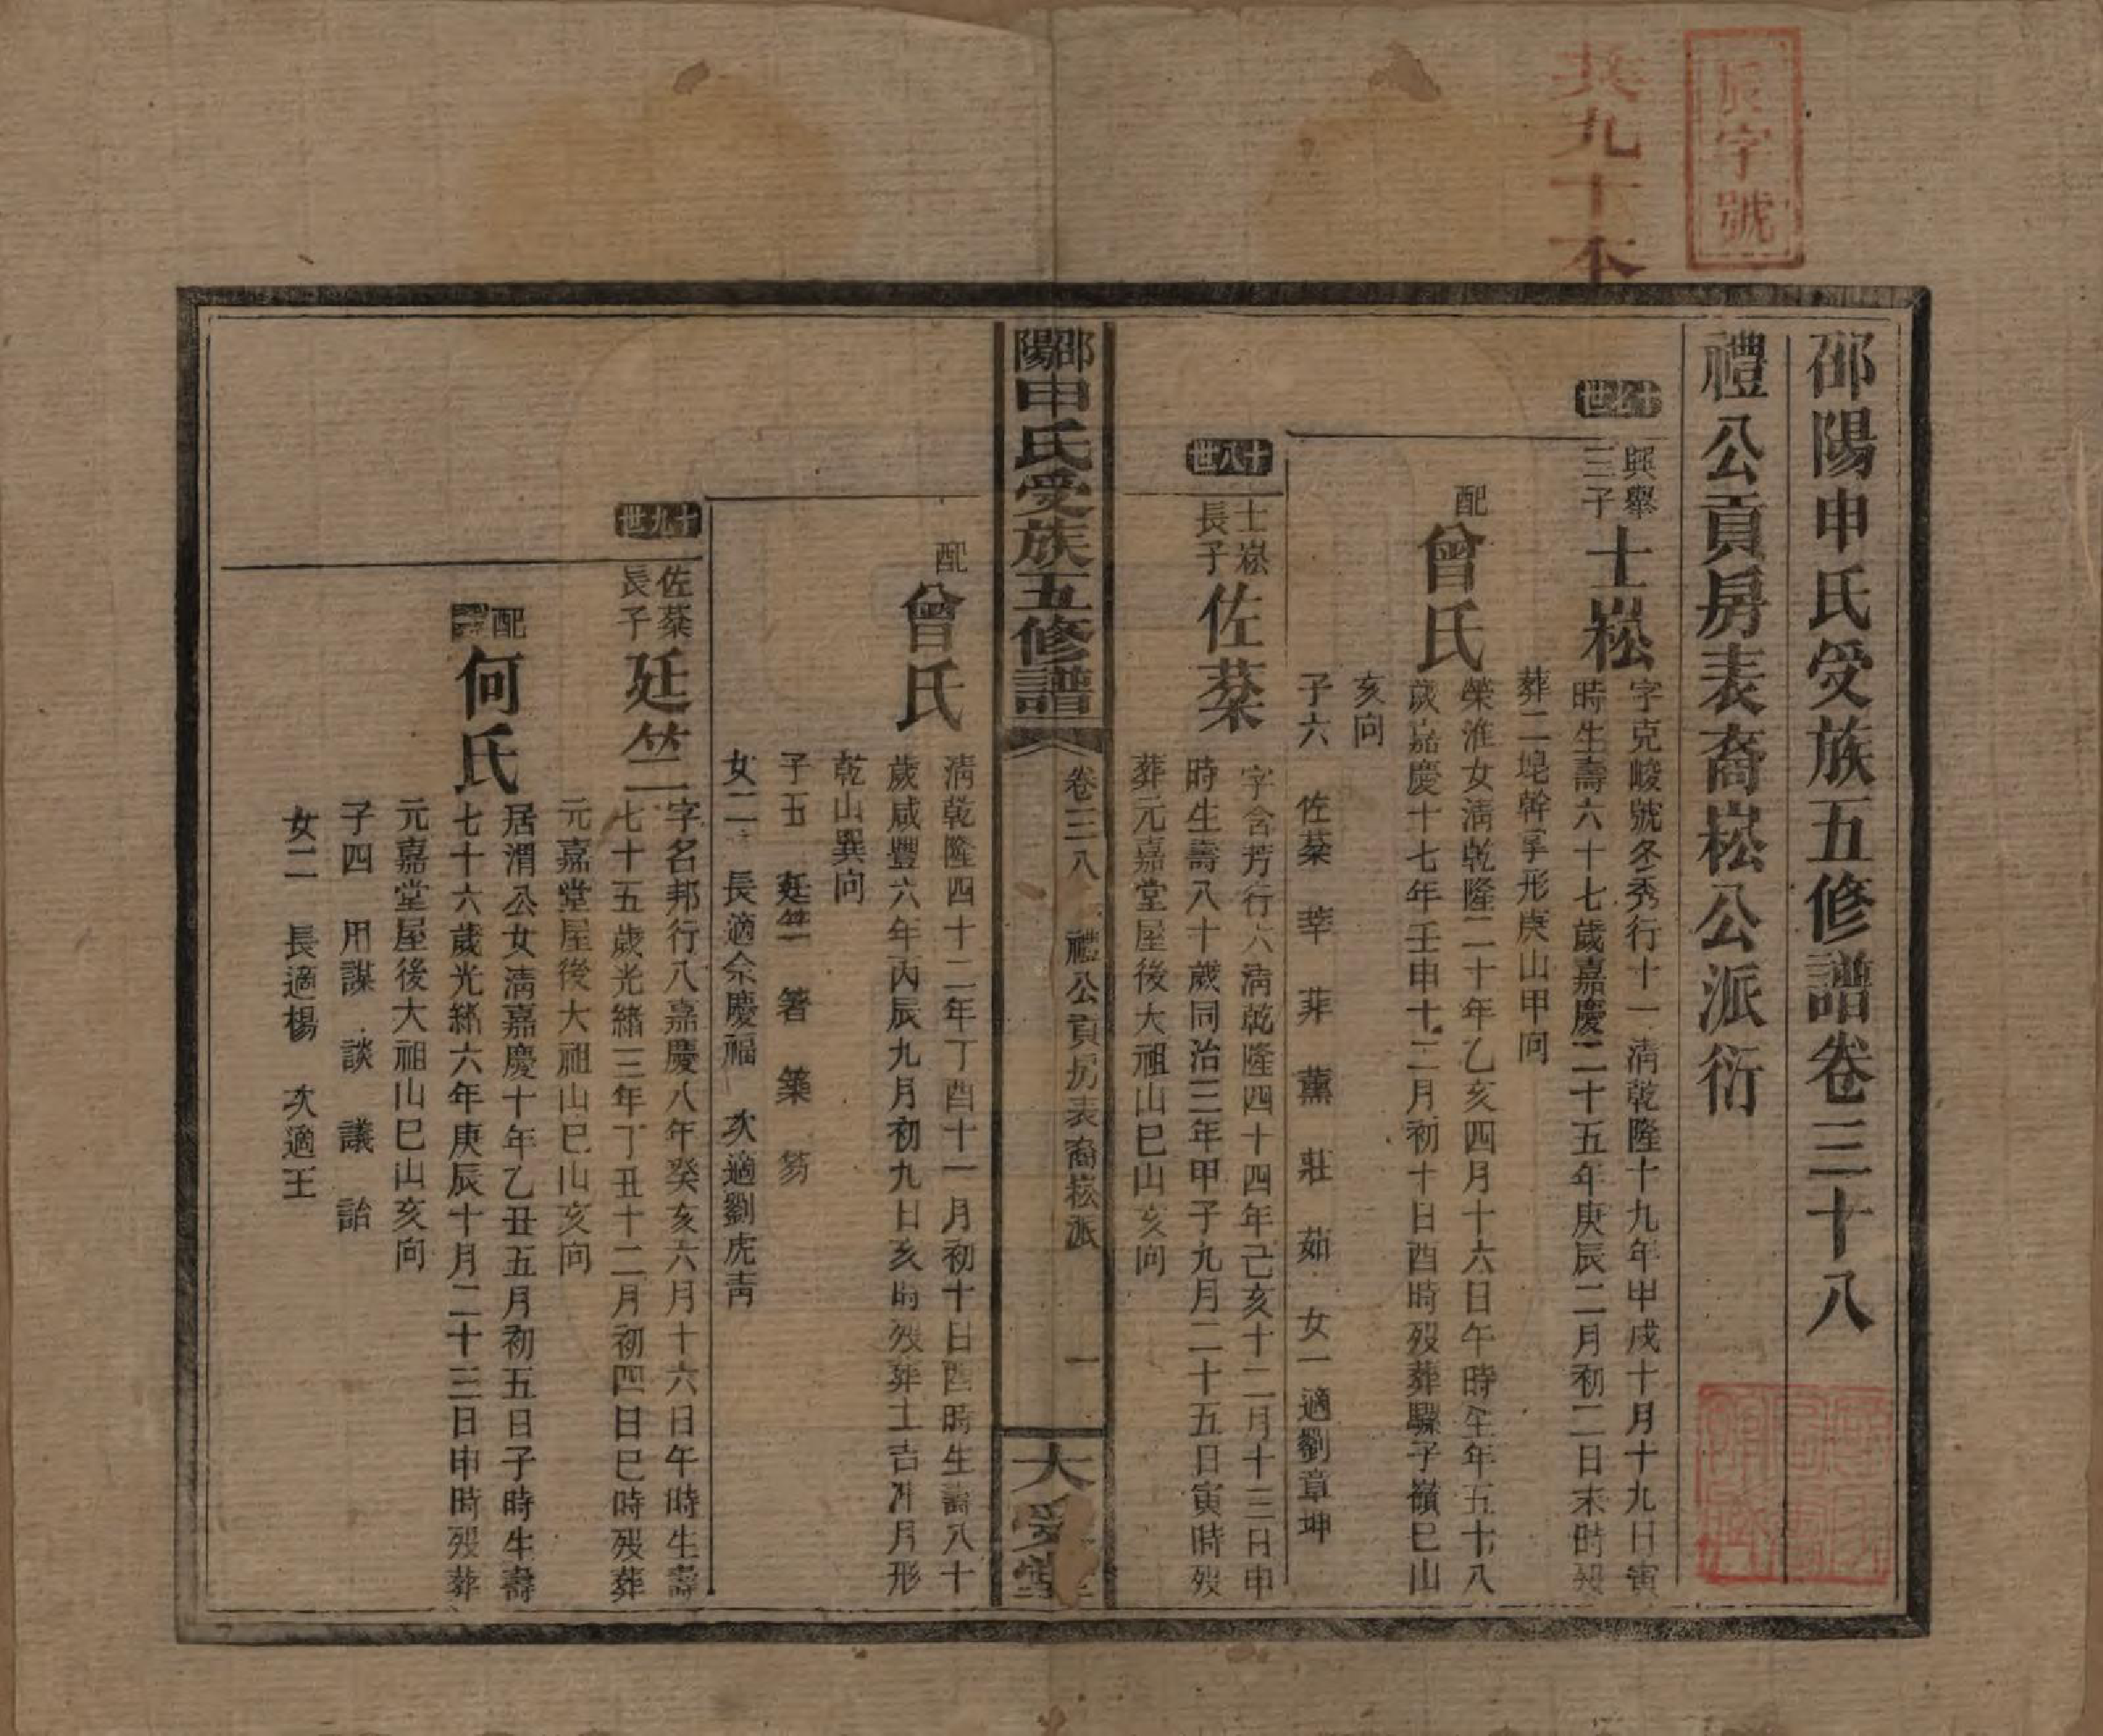 辰字號
共九十本
邵陽申氏受族五修譜卷三十八
禮公貢房表裔崧公派衍
十七世
興舉三子
士崧
字克峻號冬秀行十一清乾隆十九年甲戌十月十九日寅
時生壽六十七歲嘉慶二十五年庚辰二月初二日未時歿
葬二堲幹掌形庚山甲向
配
曾氏
榮淮女清乾隆二十年乙亥四月十六日午時生年五十八
歲嘉慶十七年壬申十二月初十日酉時歿葬騾子嶺巳山
亥向
子六 佐蔾 莘 菲 薰 莊 茹 女一適劉章坤
十八世
士崧長子
佐蔾
字含芳行六清乾隆四十四年己亥十二月十三日申
時生壽八十歲同治三年甲子九月二十五日寅時歿
葬元嘉堂屋後大祖山巳山亥向
邵陽申氏受族五修譜
卷三八 禮公貢房表裔崧派
一
大受堂
配
曾氏
清乾隆四十二年丁酉十一月初十日酉時生壽八十
歲咸豐六年丙辰九月初九日亥時歿葬土吉冲月形
乾山巽向
子五 廷竺 箸 築 笏
女二 長適佘慶福 次適劉虎青
十九世
佐蔾長子
廷竺
字名邦行八嘉慶八年癸亥六月十六日午時生壽
七十五歲光緒三年丁丑十二月初四日巳時歿葬
元嘉堂屋後大祖山巳山亥向
配
何氏
居渭公女清嘉慶十年乙丑五月初五日子時生壽
七十六歲光緒六年庚辰十月二十三日申時歿葬
元嘉堂屋後大祖山巳山亥向
子四 用謀 談 議 詒
女二 長適楊 次適王